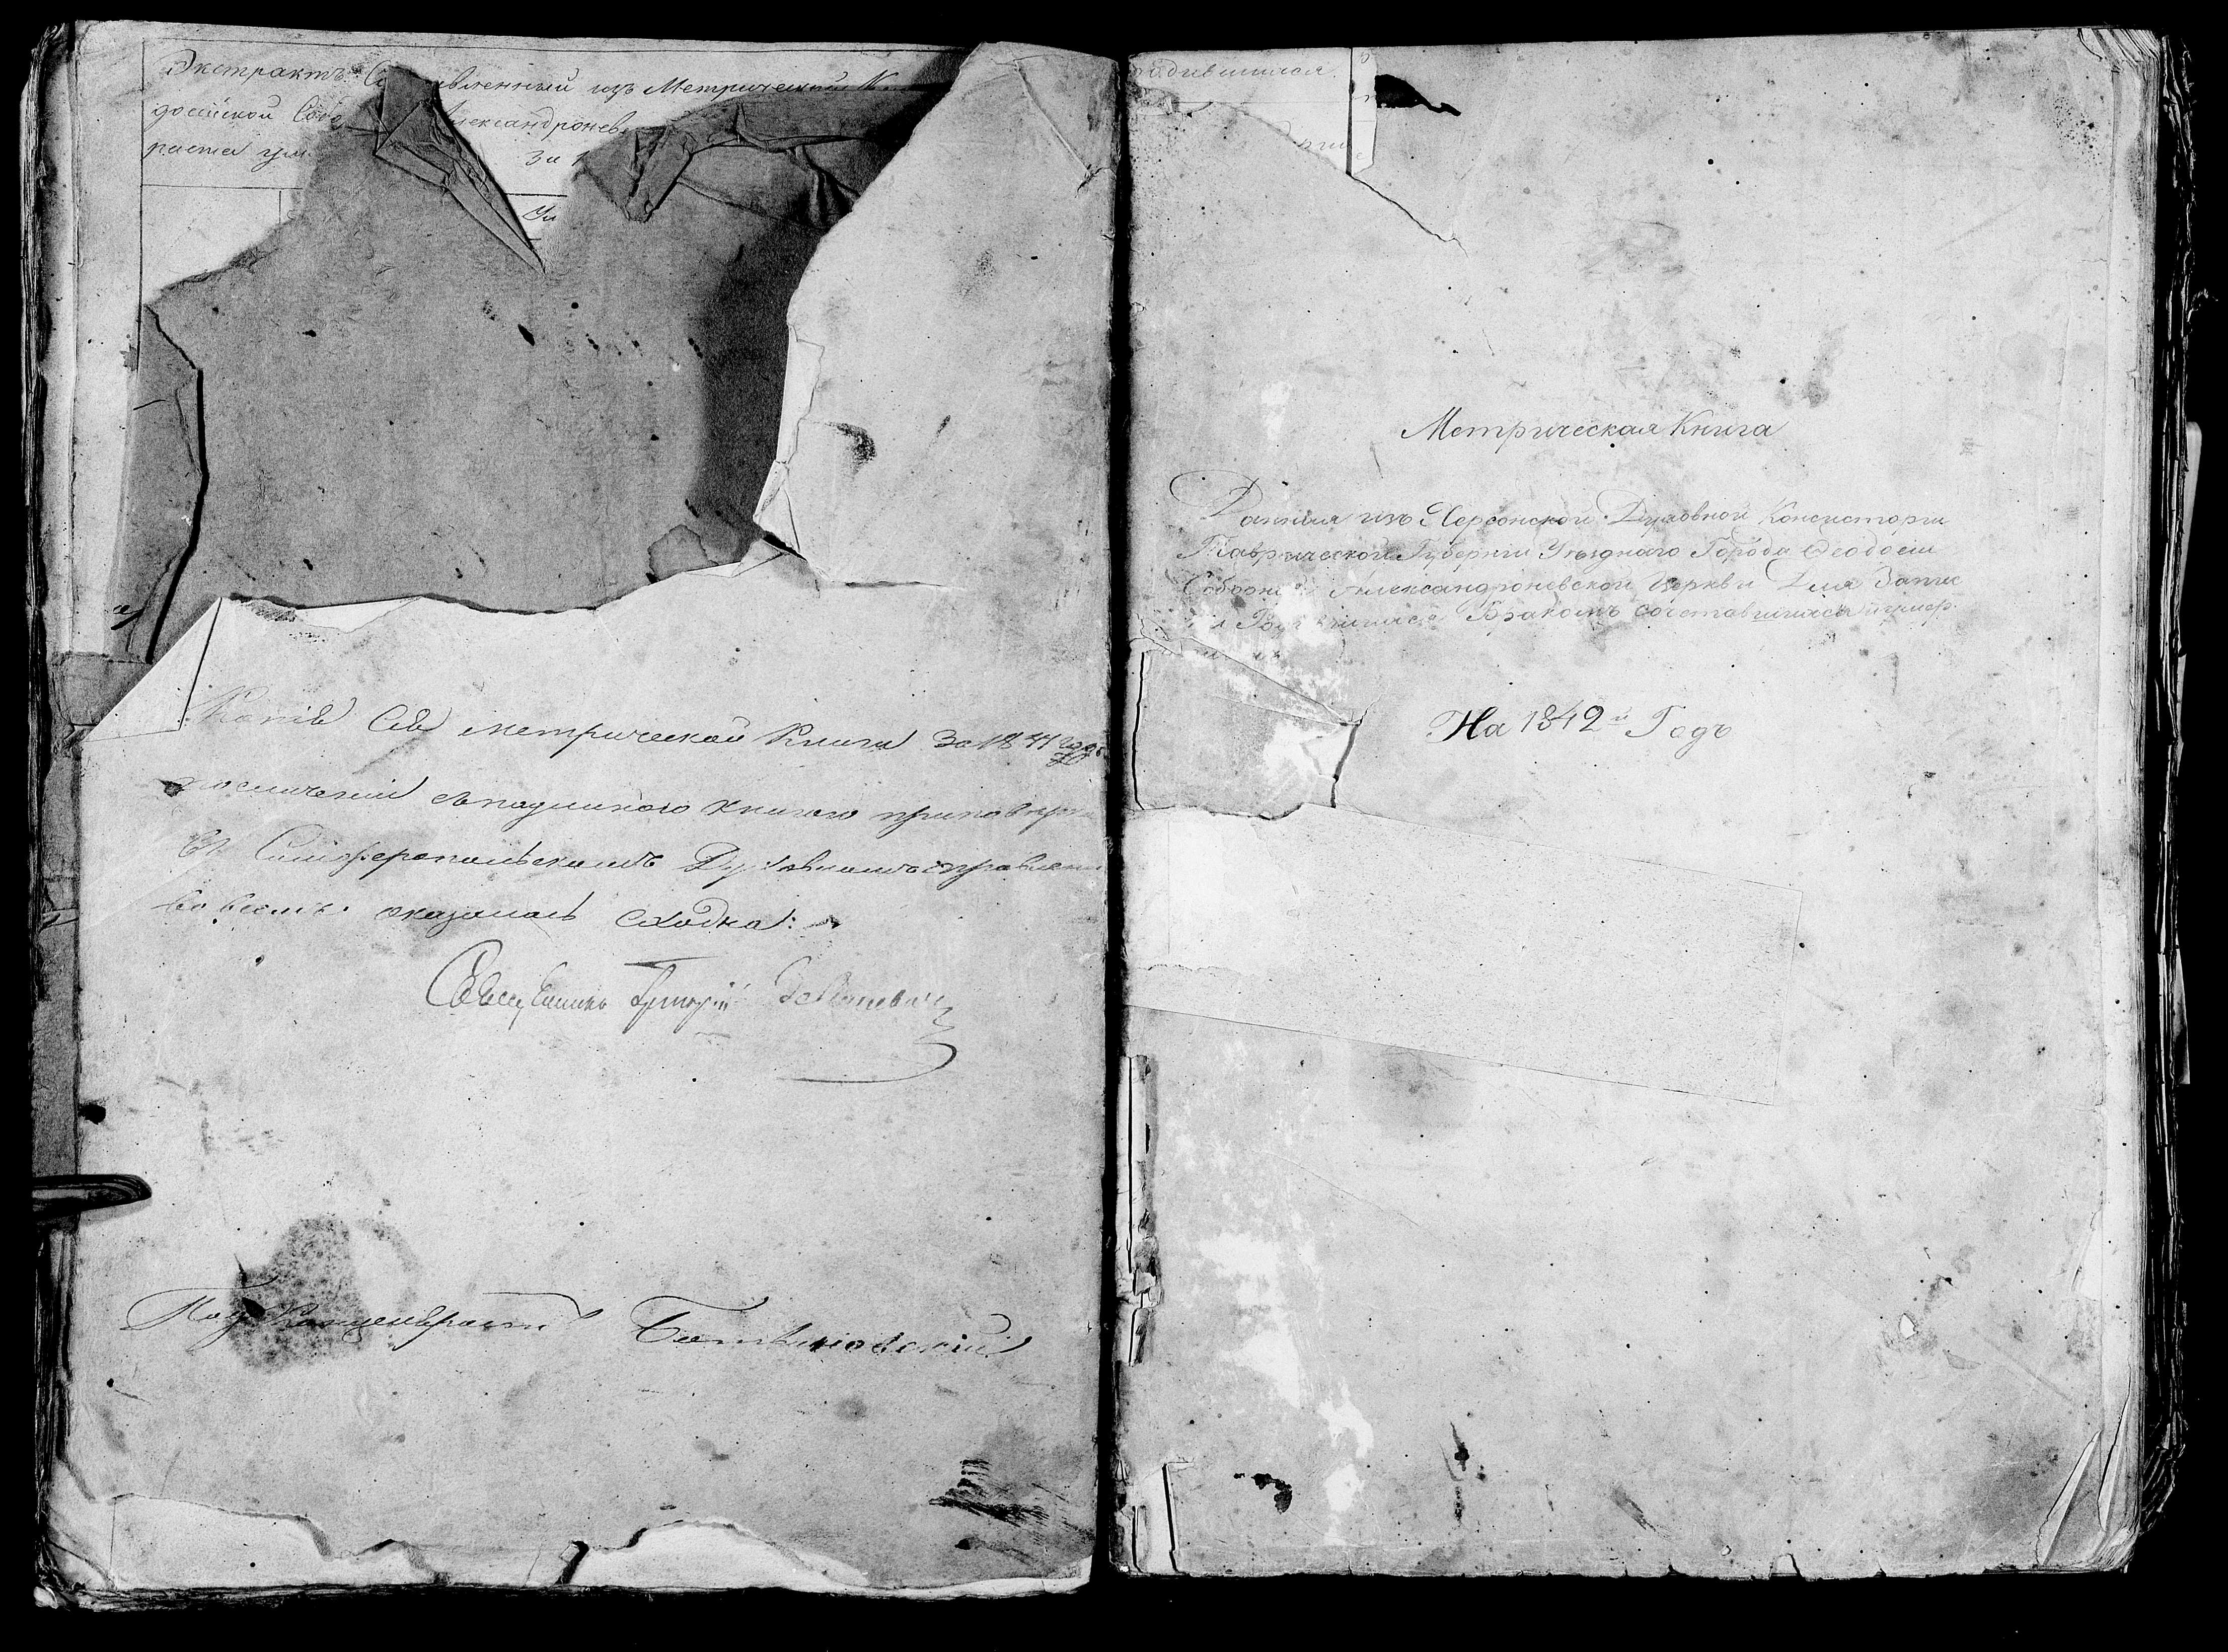 Экстрактъ Со авленный изъ Метрической К
досійской Собо Александронев
раста ум За 1
Ум
Копія Сія метрической Книги За 1841 годъ
посличеніи съподлинною книгою приповерки
Въ Симферопольскомъ Духовномъ правлени
во всемъ оказалась сходна:
Священникъ Григорій
Под Канцеляристъ
родившихся
Метрическая Книга
Данная изъ Херсонской Духовной Консисторіи
Таврической Губерніи Уѣзднаго Города Ѳеодосіи
Соборной Александроневской Церкви Для Запис
и Родившихся Бракомъ сочетавшихся и умер
шихъ
На 1842й Годъ